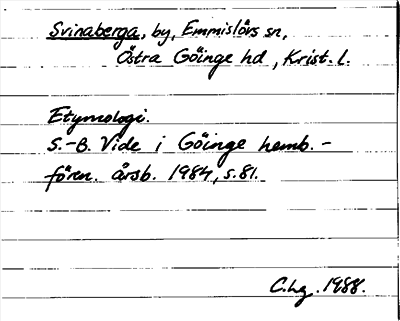 Svinaberga, by, Emmislövs sn,
Östra Göinge hd, Krist. l.
Etymologi.
S.-B. Vide i Göinge hemb.-
fören. årsb. 1984, s. 81.
C.Lg. 1988.